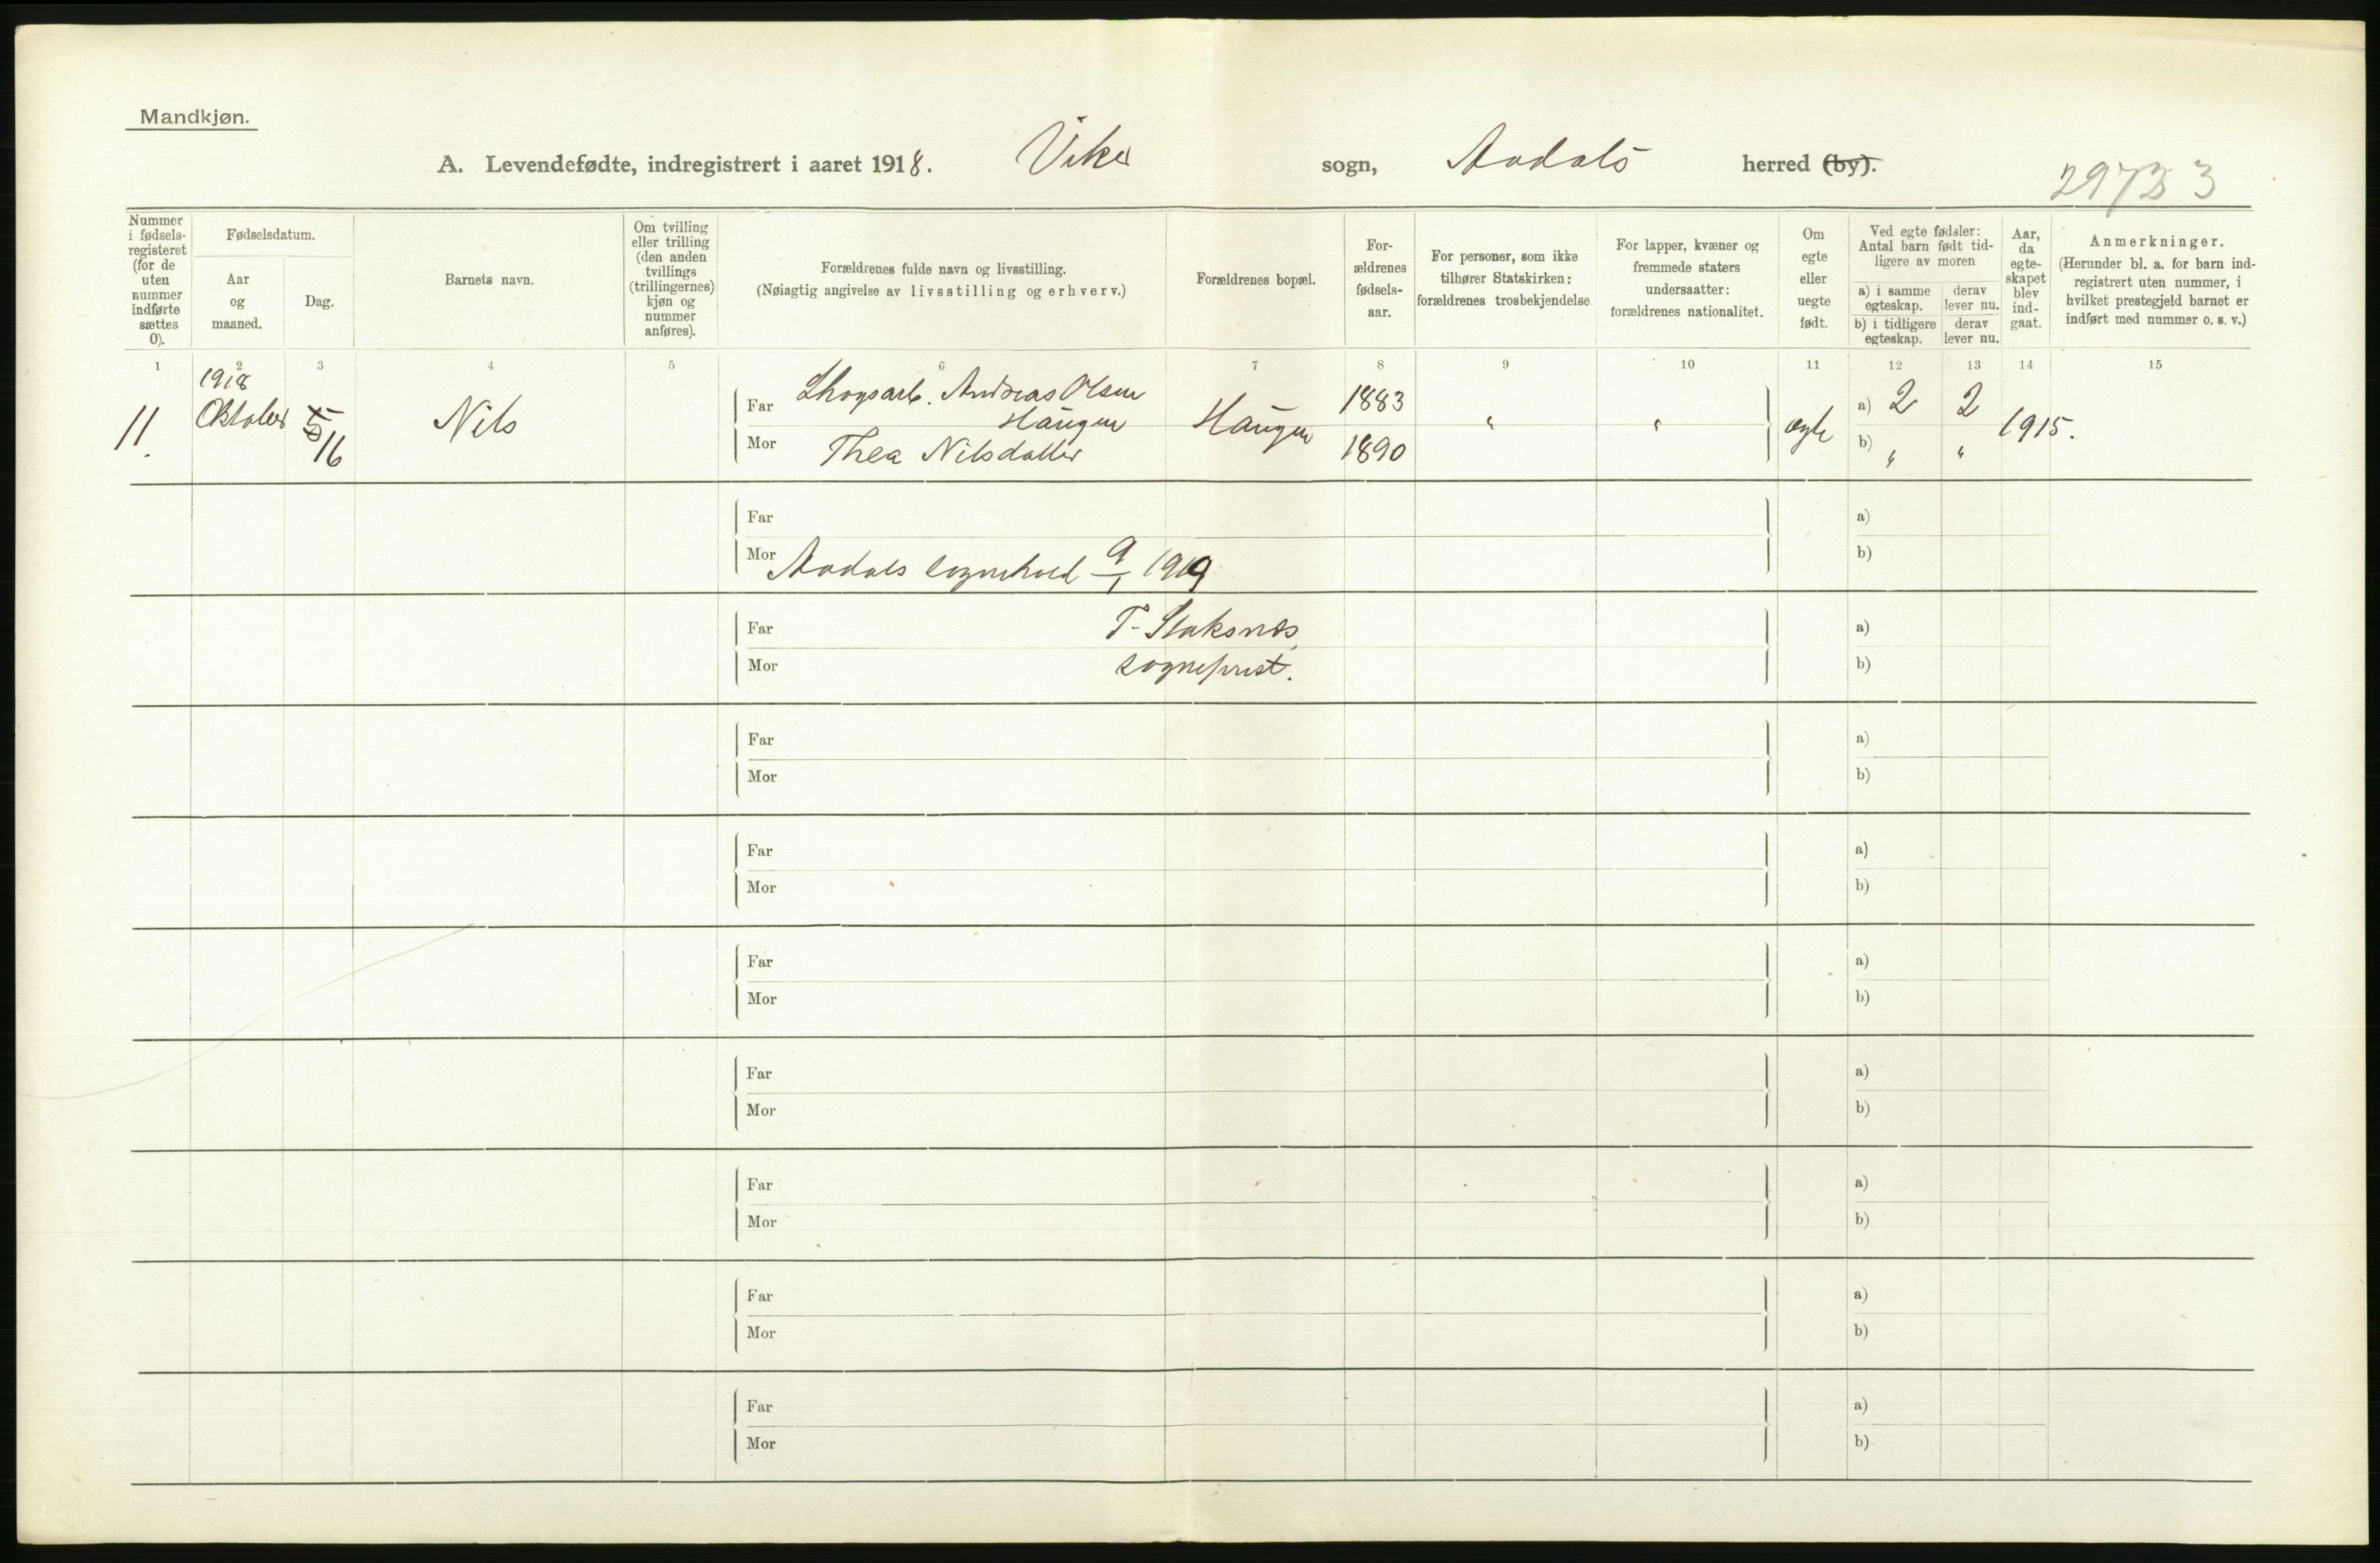 Mandkjøn.
A. Levendefødte, indregistrert i aaret 1918. Viker sogn, Aadals herred (by).
Nummer
i fødsels-
registeret
(for de
uten
nummer
indførte
sættes
0).
Fødselsdatum.
Aar
og
maaned.
Dag.
Barnets navn.
Om tvilling
eller trilling
(den anden
tvillings
(trillingernes)
kjøn og
nummer
anføres).
Forældrenes fulde navn og livsstilling.
(Nøiagtig angivelse av livsstilling og erhverv.)
Forældrenes bopæl.
For-
ældrenes
fødsels-
aar.
For personer, som ikke
tilhører Statskirken:
forældrenes trosbekjendelse.
For lapper, kvæner og
fremmede staters
undersaatter:
forældrenes nationalitet.
Om
egte
eller
uegte
født.
Ved egte fødsler:
Antal barn født tid-
ligere av moren
a) i samme
egteskap.
derav
lever nu.
b) i tidligere
egteskap.
derav
lever nu.
Aar,
da
egte-
skapet
blev
ind-
gaat.
Anmerkninger.
(Herunder bl. a. for barn ind-
registrert uten nummer, i
hvilket prestegjeld barnet er
indført med nummer o. s. v.)
1 2 3 4 5 6 7 8 9 10 11 12 13 14 15
1918
11. Oktober 5 16 Nils
Far Skogsarb. Andreas Olsen
Haugen
Haugen 1883 " " ægte a) 2 2 1915.
Mor Thea Nilsdatter 1890 b) " "
Far a)
Mor b)
Aadals sognekald 9/1 1919
Far T. Slaksnes a)
Mor sogneprest. b)
Far a)
Mor b)
Far a)
Mor b)
Far a)
Mor b)
Far a)
Mor b)
Far a)
Mor b)
Far a)
Mor b)
Far a)
Mor b)